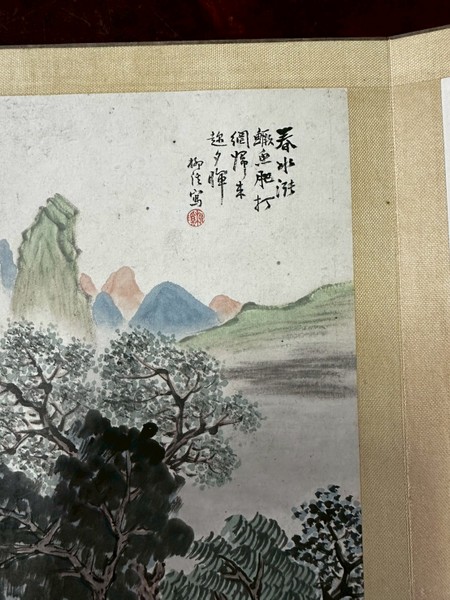 春水漲
鱖魚肥打
網歸來
趁夕暉
柳寫